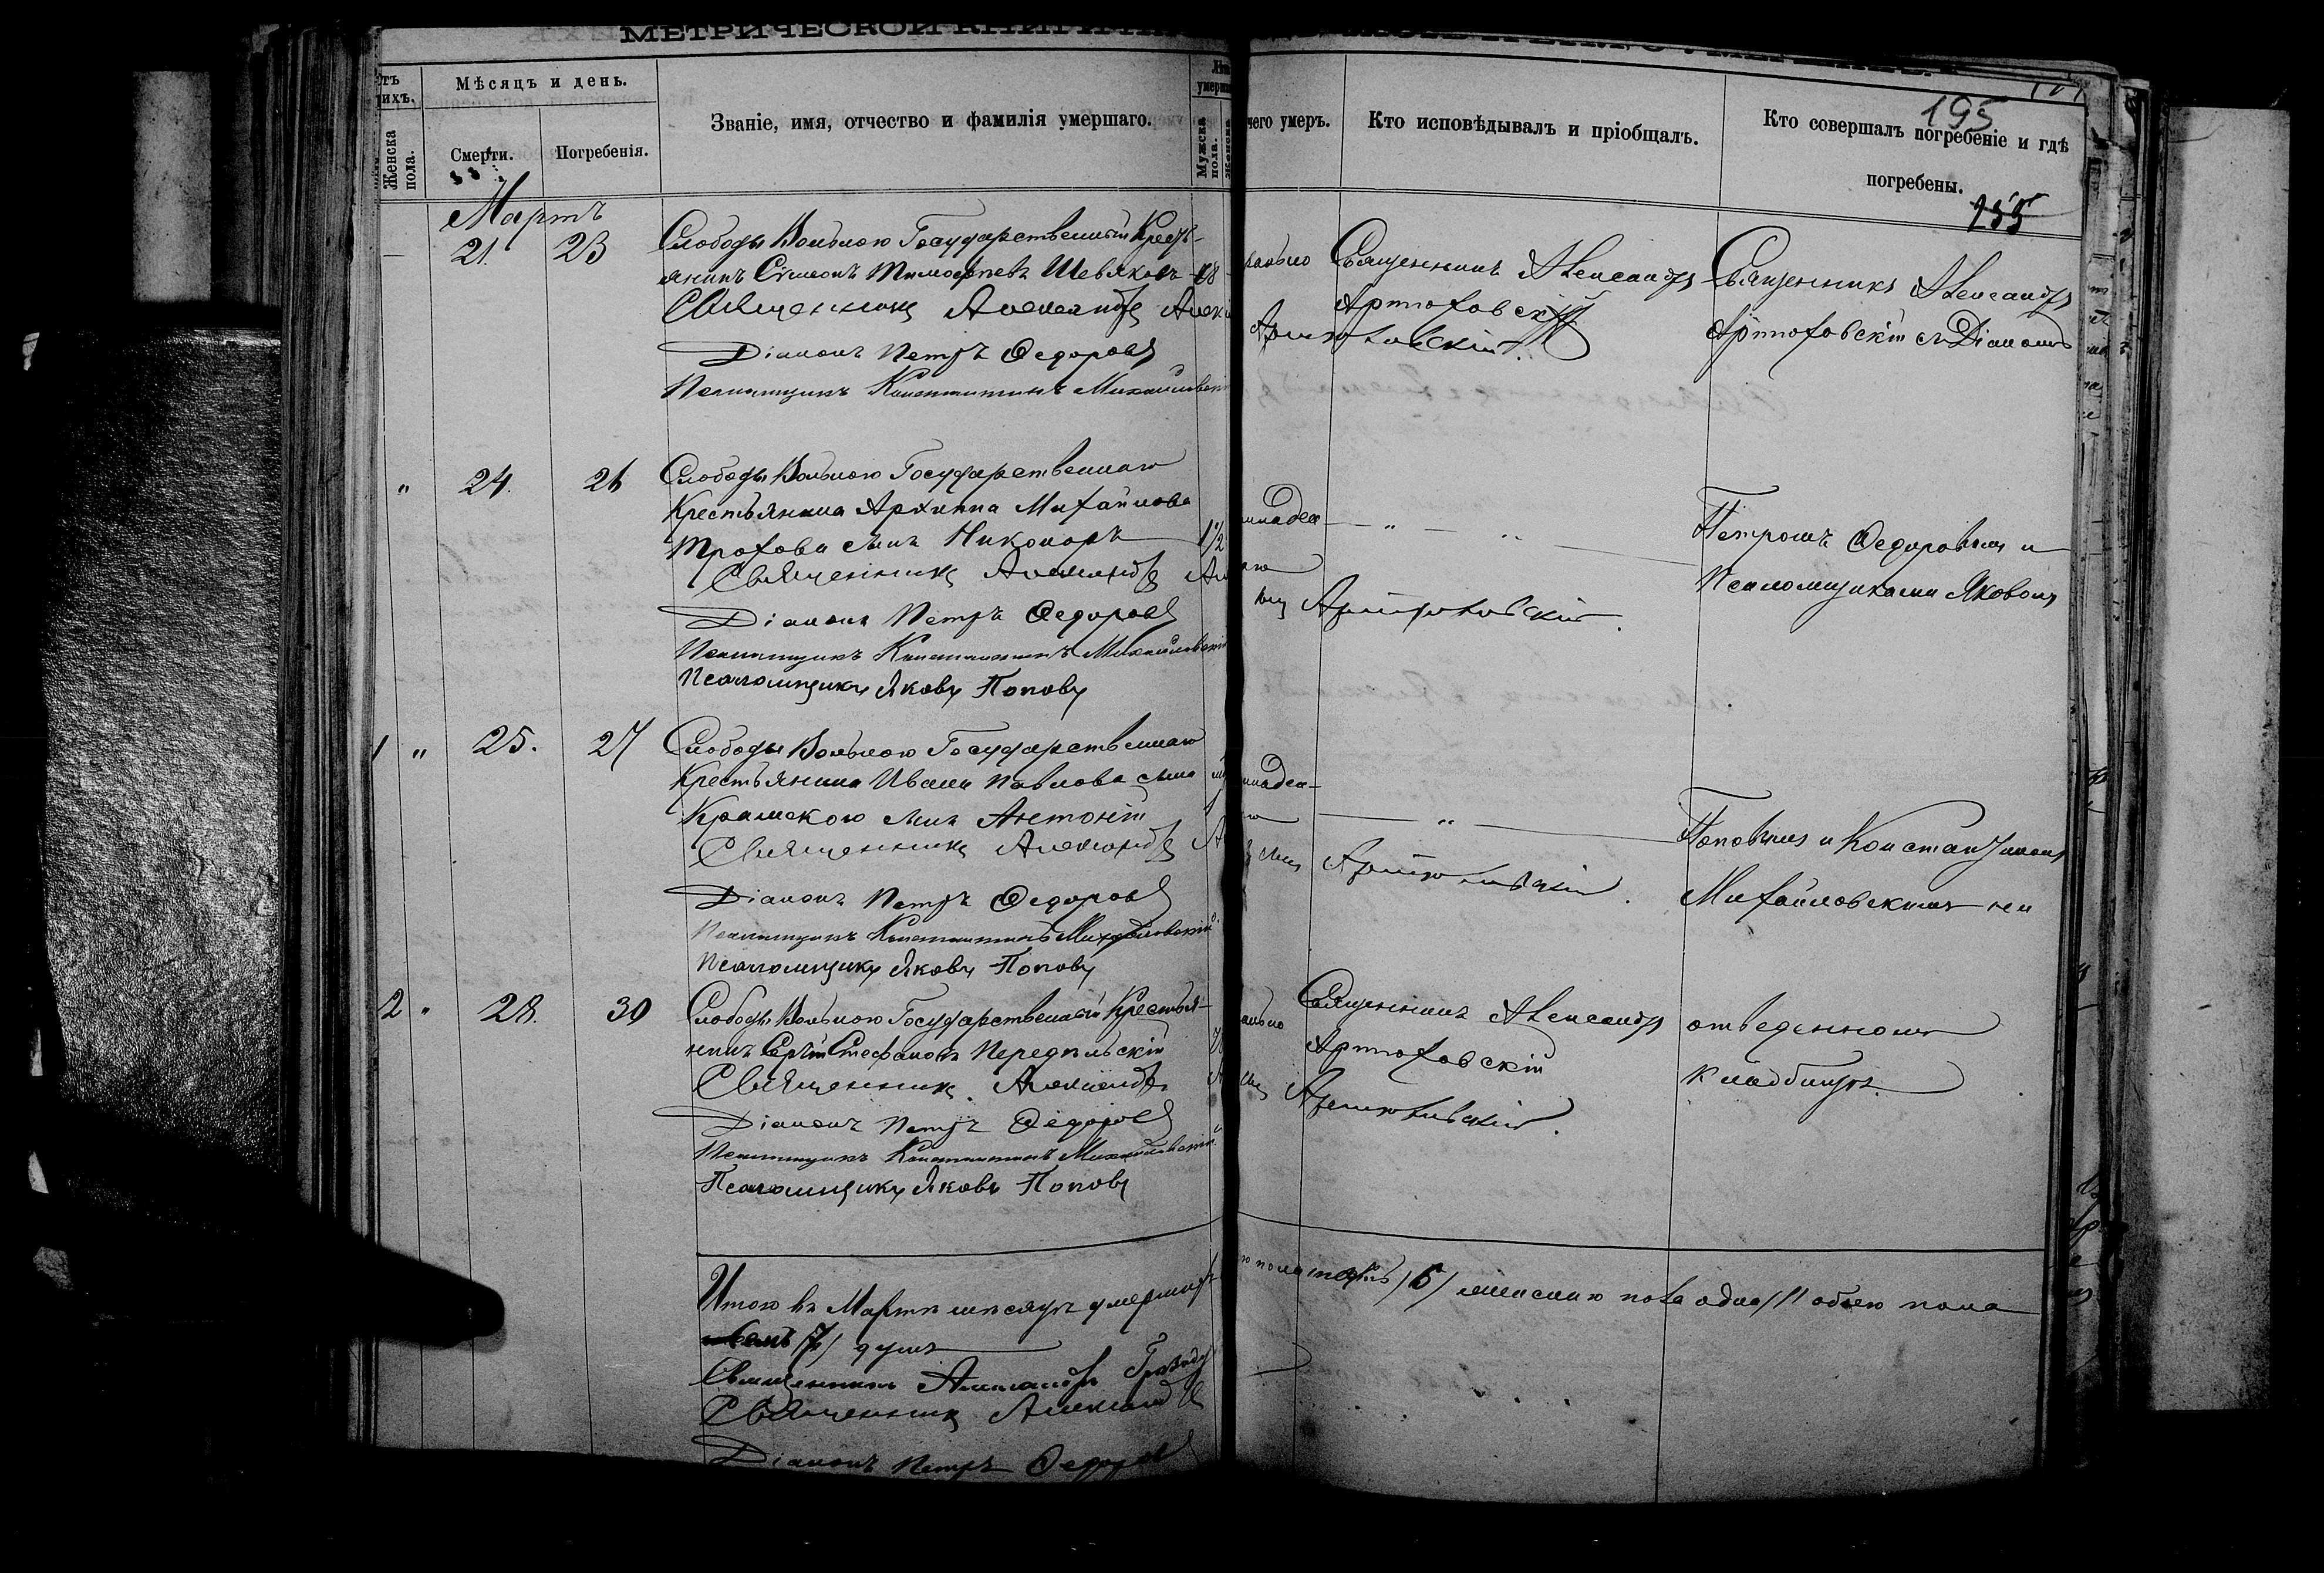 МЕТРИЧЕСКОЙ КНИГИ
Мѣсяцъ и день.
Женска пола.
Смерти.
Погребенія.
Званіе, имя, отчество и фамилія умершаго.
Мужска пола.
чего умеръ.
Кто исповѣдывалъ и пріобщалъ.
Кто совершалъ погребеніе и гдѣ
погребены.
195
155
Мартъ
21. 23
Слободы Вольною Государственный Кресть-
янинъ Симеонъ Тимофеевъ Шевяковъ
Священникъ Александръ
Діаконъ Петръ Федоровъ
Псаломщикъ Константинъ Михайловскій
Священникъ Александръ
Артюховскій
Артюховскій.
Священникъ Александръ
Артюховскій съ Діакономъ
" 24. 26
Слободы Вольною Государственнаго
Крестьянина Архиппа Михайлова
Трофова сынъ Никоноръ 1/2
Священникъ Александръ
Діаконъ Петръ Федоровъ
Псаломщикъ Константинъ Михайловскій
Псаломщикъ Яковъ Поповъ
младен
Артюховскій.
Петромъ Федоровымъ и
Псаломщиками Яковомъ
" 25. 27
Слободы Вольною Государственнаго
Крестьянина Ивана Павлова сына
Крамскою сынъ Антоній
Священникъ Александръ
Діаконъ Петръ Федоровъ
Псаломщикъ Константинъ Михайловскій
Псаломщикъ Яковъ Поповъ
младен-
Артюховскій.
Поповымъ и Константиномъ
Михайловскимъ на
2 " 28. 30
Слободы Вольною Государственный Крестья-
нинъ Сергѣй Стефановъ Передельскій
Священникъ Александръ
Діаконъ Петръ Федоровъ
Псаломщикъ Константинъ Михайловскій
Псаломщикъ Яковъ Поповъ
Священникъ Александръ
Артюховскій
Артюховскій.
отведенномъ
кладбищѣ.
Итого въ Мартѣ мѣсяцѣ умершихъ
пола /6/ женскаго пола одна /1/ обоего пола
семь /7/ душъ
Священникъ Александръ
Священникъ Александръ
Діаконъ Петръ Федоровъ